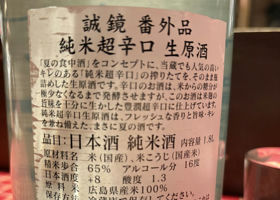 誠鏡 番外品
純米超辛口 生原酒
「夏の食中酒」をコンセプトに、当蔵でも人気の高い
キレのある「純米超辛口」の搾りたてを、そのまま瓶
詰めした生原酒です。辛口のお酒は、米からの糖分が
極少なくなるまで発酵させますが、このお酒はお米の
旨味を十分に生かした豊潤超辛口に仕上げています。
純米超辛口生原酒は、フレッシュな香りと旨味・キレ
を兼ね備えた、まさに夏の酒です。
品目:日本酒 純米酒 内容量 1.8L
原材料名 米(国産)、米こうじ(国産米)
精米歩合 65% アルコール分 16度
日本酒度 +8 酸度 1.3
原料米 広島県産米100%
保存方法 冷蔵で保存してください。